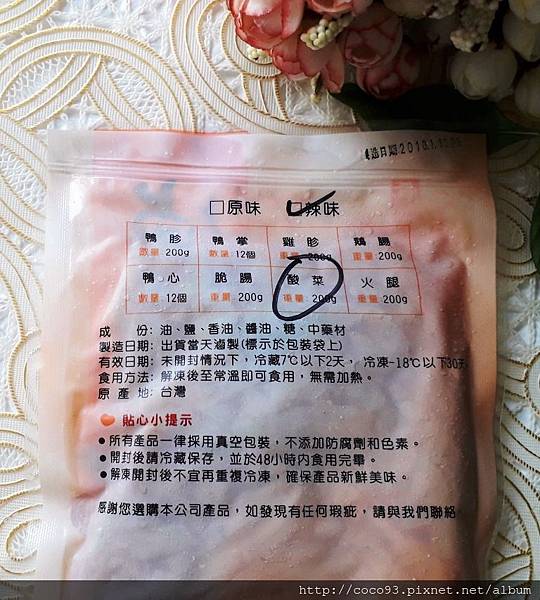 製造日期 2018.1
□原味 ☑辣味
鴨胗 鴨掌 雞胗 鴨腸
數量:200g 數量:12個 重量:200g 重量:200g
鴨心 脆腸 酸菜 火腿
數量:12個 重量:200g 重量:200g 重量:200g
成 份: 油、鹽、香油、醬油、糖、中藥材
製造日期: 出貨當天滷製(標示於包裝袋上)
有效日期: 未開封情況下，冷藏7℃以下2天， 冷凍-18℃以下30天
食用方法: 解凍後至常溫即可食用，無需加熱。
原 產 地: 台灣
貼心小提示
●所有產品一律採用真空包裝，不添加防腐劑和色素。
●開封後請冷藏保存，並於48小時內食用完畢。
●解凍開封後不宜再重複冷凍，確保產品新鮮美味。
感謝您選購本公司產品，如發現有任何瑕疵，請與我們聯絡
http://coco93.pixnet.net/album